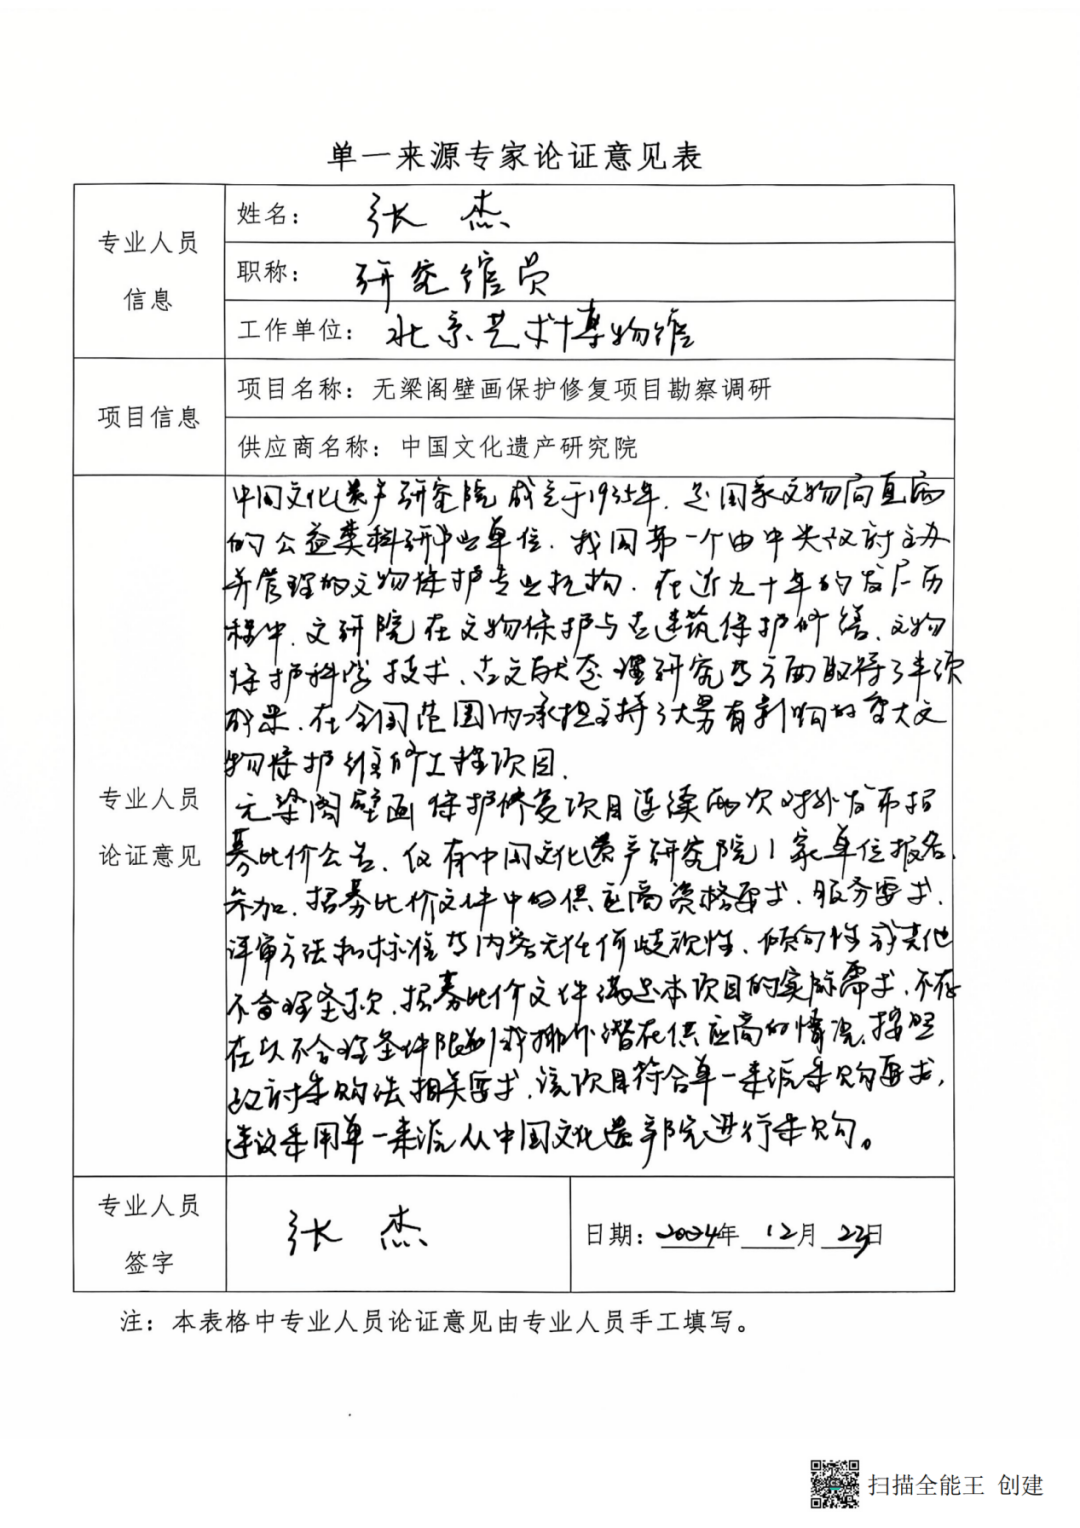 单一来源专家论证意见表
专业人员
信息
姓名： 张 杰
职称： 研究馆员
工作单位： 北京艺术博物馆
项目信息
项目名称：无梁阁壁画保护修复项目勘察调研
供应商名称：中国文化遗产研究院
专业人员
论证意见
中国文化遗产研究院成立于1935年，是国家文物局直属
的公益类科研事业单位，我国第一个由中央政府主办
并管理的文物保护专业机构。在近九十年的发展历
程中，文研院在文物保护与古建筑保护修缮、文物
保护科学技术、古文献整理研究等方面取得了丰硕
成果，在全国范围内承担主持了大量有影响的重大文
物保护维修工程项目。
无梁阁壁画保护修复项目连续两次对外发布招
募比价公告，仅有中国文化遗产研究院1家单位报名
参加，招募比价文件中的供应商资格要求、服务要求、
评审方法和标准等内容无任何歧视性、倾向性或其他
不合理条款，招募比价文件满足本项目的实际需求，不存
在以不合理条件限制或排斥潜在供应商的情况，按照
政府采购法相关要求，该项目符合单一来源采购要求，
建议采用单一来源从中国文化遗产院进行采购。
专业人员
签字
张 杰
日期：2024年 12月 23日
注：本表格中专业人员论证意见由专业人员手工填写。
扫描全能王 创建